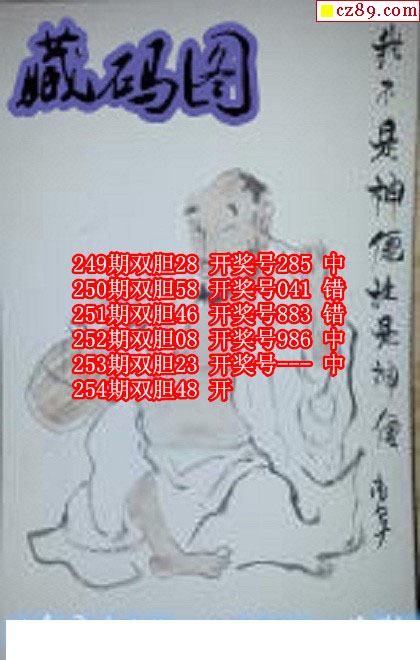 cz89.com
藏码图
我不是神便杜是神便
249期双胆28 开奖号285 中
250期双胆58 开奖号041 错
251期双胆46 开奖号883 错
252期双胆08 开奖号986 中
253期双胆23 开奖号--- 中
254期双胆48 开